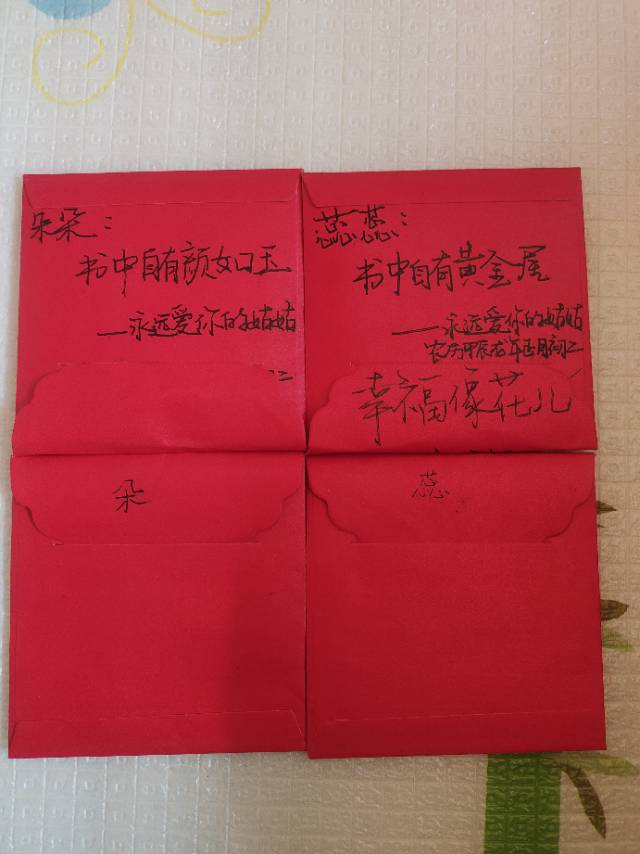 朵朵：
书中自有颜如玉
——永远爱你的姑姑
蕊蕊：
书中自有黄金屋
——永远爱你的姑姑
农历甲辰龙年正月初二
幸福像花儿
朵
蕊